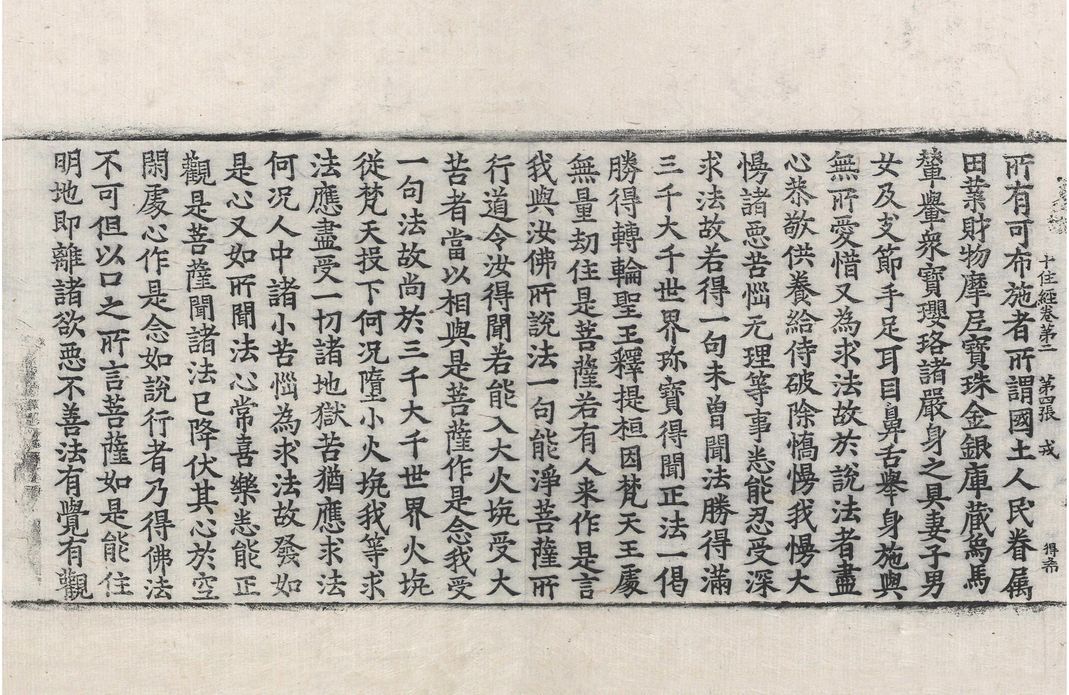 十住經卷第二 第四張 戎
所有可布施者所謂國土人民眷属
田業財物摩尼寶珠金銀庫藏象馬
輦轝衆寶瓔珞諸嚴身之具妻子男
女及支節手足耳目鼻舌舉身施與
無所愛惜又為求法故於說法者盡
心恭敬供養給侍破除憍慢我慢大
慢諸惡苦惱无理等事悉能忍受深
求法故若得一句未曾聞法勝得滿
三千大千世界珎寶得聞正法一偈
勝得轉輪聖王釋提桓因梵天王處
無量劫住是菩薩若有人来作是言
我與汝佛所說法一句能淨菩薩所
行道令汝得聞若能入大火坑受大
苦者當以相與是菩薩作是念我受
一句法故尚於三千大千世界火坑
從梵天投下何况墮小火坑我等求
法應盡受一切諸地獄苦猶應求法
何况人中諸小苦惱為求法故發如
是心又如所聞法心常喜樂悉能正
觀是菩薩聞諸法已降伏其心於空
閑處心作是念如說行者乃得佛法
不可但以口之所言菩薩如是能住
明地即離諸欲惡不善法有覺有觀